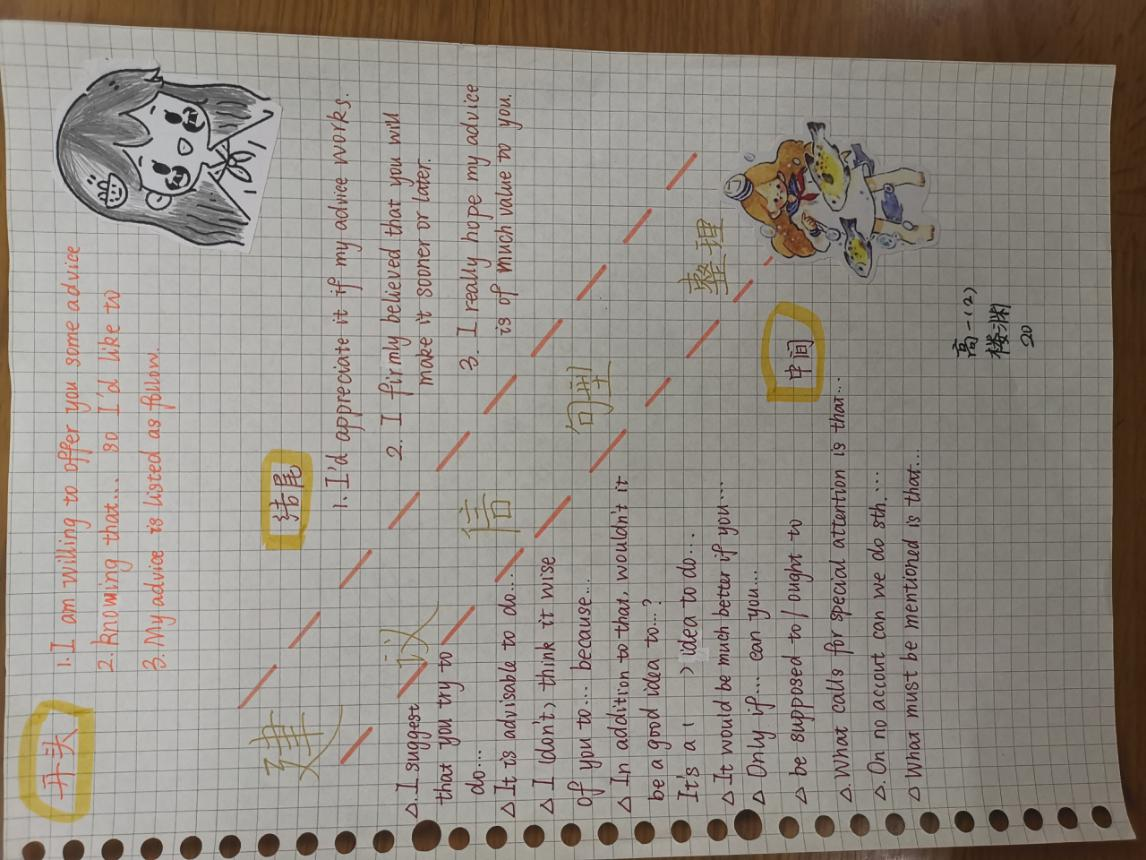 开头
1. I am willing to offer you some advice
2. Knowing that... so I'd like to
3. My advice is listed as follow.
建议信句型整理
结尾
1. I'd appreciate it if my advice works.
2. I firmly believed that you will
make it sooner or later.
3. I really hope my advice
is of much value to you.
△. I suggest
that you try to
do....
△ It is advisable to do...
△ I (don't) think it wise
of you to... because...
△ In addition to that, wouldn't it
be a good idea to...?
It's a ( ) idea to do...
△ It would be much better if you...
△ Only if... can you...
△ be supposed to / ought to
△. What calls for special attention is that...
△. On no accout can we do sth. ...
△ What must be mentioned is that...
中间
高一(2)
楼渊
20